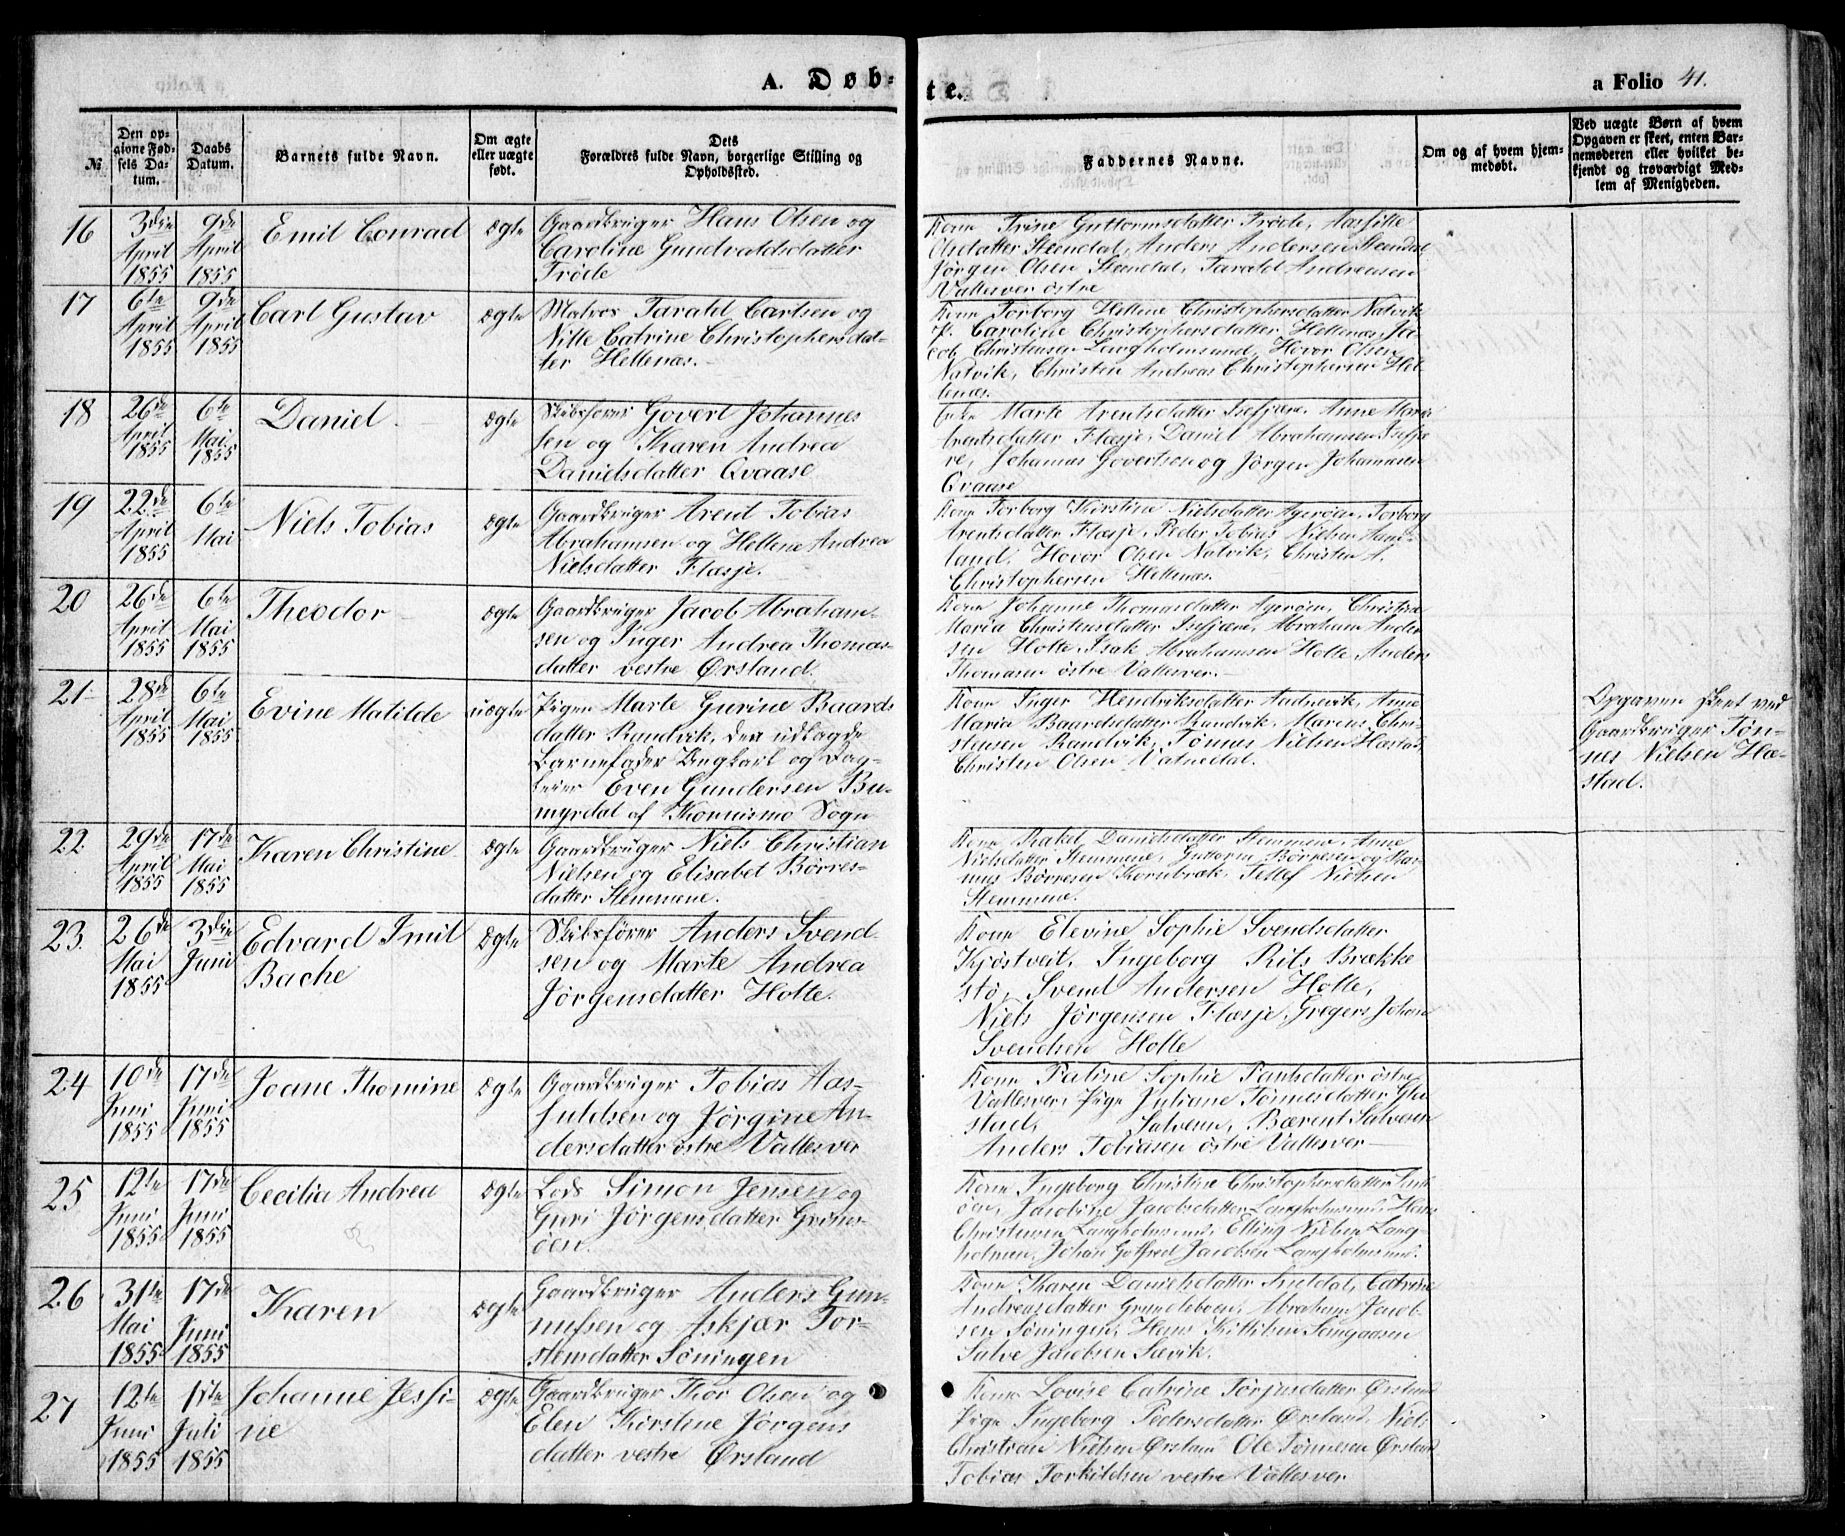 A. Døb-
te.
a Folio 41.
№
Den op-
givne Fød-
sels Da-
tum.
Daabs
Datum.
Barnets fulde Navn.
Om ægte
eller uægte
født.
Dets
Forældres fulde Navn, borgerlige Stilling og
Opholdssted.
Faddernes Navne.
Om og af hvem hjem-
medøbt.
Ved uægte Børn af hvem
Opgaven er skeet, enten Bar-
nemoderen eller hvilket be-
kjendt og troværdigt Med-
lem af Menigheden.
16
3die
April
1855
9de
April
1855
Emil Conrad
ægte
Gaardbruger Hans Olsen og
Caroline Gundvaldsdatter
Trøde
Kone Trine Guttormsdatter Trøde, Aasille
Olsdatter Steendal, Anders Andersen Steendal,
Jørgen Olsen Steendal, Tarald Andreasen
Vallesver østre
17
6te
April
1855
9de
April
1855
Carl Gustav
ægte
Matros Tarald Carlsen og
Nille Catrine Christophersdat-
ter Hellenæs.
Kone Torborg Hellene Christophersdatter Natvik
P. Caroline Christophersdatter Hellenæs, Ja-
cob Christensen Langholmsund, Hovor Olsen
Natvik, Christen Andreas Christophersen Hel-
lenæs.
18
26de
April
1855
6te
Mai
1855
Daniel
ægte
Skibsfører Govert Johannes-
sen og Karen Andrea
Danielsdatter Qvaase
Enke Marte Arentsdatter Isefjær, Anne Maria
Arentsdatter Flasje, Daniel Abrahamsen Isefjæ-
re, Johannes Govertsen og Jørgen Johannesen
Qvaase
19
22de
April
1855
6te
Mai
Niels Tobias
ægte
Gaardbruger Arent Tobias
Abrahamsen og Hellene Andrea
Nielsdatter Flasje.
Kone Torborg Kirstine Nielsdatter Agerøen, Torborg
Arentsdatter Flasje, Peder Tobias Nielsen
land, Hovor Olsen Natvik, Christen A.
Christophersen Hellenæs.
20
26de
April
1855
6te
Mai
1855
Theodor
ægte
Gaardbruger Jacob Abraham-
sen og Inger Andrea Thomas-
datter vestre Ørsland.
Kone Johanne Thomasdatter Agerøen, Christine
Maria Christensdatter Isefjær, Abraham Ander-
sen Holte, Isak Abrahamsen Holte, Anders
Thomasen østre Vallesver.
21
28de
April
1855
6te
Mai
1855
Evine Matilde
uægte
Pigen Marte Gurine Baards-
datter Randvik, den udlagde
Barnefader Ungkarl og Dag-
leier Even Gundersen Bu-
myrdal af Homismo Sogn
Kone Inger Hendriksdatter Aadnevik, Anne
Maria Baardsdatter Randvik, Marens Chri-
stensen Randvik, Tønnes Nielsen Hæstad,
Christen Olsen Vatnedal.
Opgaven skeet ved
Gaardbruger Tøn-
nes Nielsen Hæ-
stad.
22
29de
April
1855
17de
Mai
1855
Karen Christine
ægte
Gaardbruger Niels Christian
Nielsen og Elisabet Børres-
datter Stemmene.
Kone Rakel Danielsdatter Stemmen, Anne
Nielsdatter Stemmene, Guttorm Børresen og Ras-
mus Børresen Kornbræk, Tellef Nielsen
Stemmene.
23.
26de
Mai
1855
3die
Juni
Edvard Imil
Bache
ægte
Skibsfører Anders Svend-
sen og Marte Andrea
Jørgensdatter Holte.
Kone Elevine Sophie Svendsdatter
Kjøstveit, Ingeborg Rits Brække
stø, Svend Andersen Holte,
Niels Jørgensen Flasje, Gregers Johan
Svendsen Holte
24
10de
Juni
1855
17de
Juni
1855
Joane Thomine
ægte
Gaardbruger Tobias Aas-
juldsen og Jørgine An-
dersdatter østre Vallesver
Kone Paline Sophie Paulsdatter østre
Vallesver, Pige Juliane Tønnesdatter Gla
stad, Salvesen, Bærent Salvesen
Anders Tobiasen østre Vallesver
25
12te
Juni
1855
17de
Juni
1855
Cecilia Andrea
ægte
Lods Simon Jensen og
Guri Jørgensdatter Grims-
øen.
Kone Ingeborg Christine Christophersdatter
øen, Jacobine Jacobsdatter Langholmsund, Hans
Christensen Langholmsund, Elling Nielsen Lang-
holmen, Johan Gotfred Jacobsen Langholmsund.
26
31te
Mai
1855
17de
Juni
1855
Karen
ægte
Gaardbruger Anders Gun-
nufsen og Askjær Tor-
stensdatter Søningen
Kone Karen Danielsdatter Suldal, Catrine
Andreasdatter Grundeboen, Abraham Jacob-
sen Søningen, Hans
Salve Jacobsen Sævik.
27
12te
Juni
1855
1ste
Juli
1855
Johanne Jessi-
ne
ægte
Gaardbruger Thor Olsen og
Elen Kirstine Jørgens
datter vestre Ørsland
Kone Lovise Catrine Torjusdatter Ørsland
Pige Ingeborg Pedersdatter Ørsland, Niels
Christian Nielsen Ørsland Ole Tønnesen Ørsland
Tobias Torkildsen vestre Vallesver